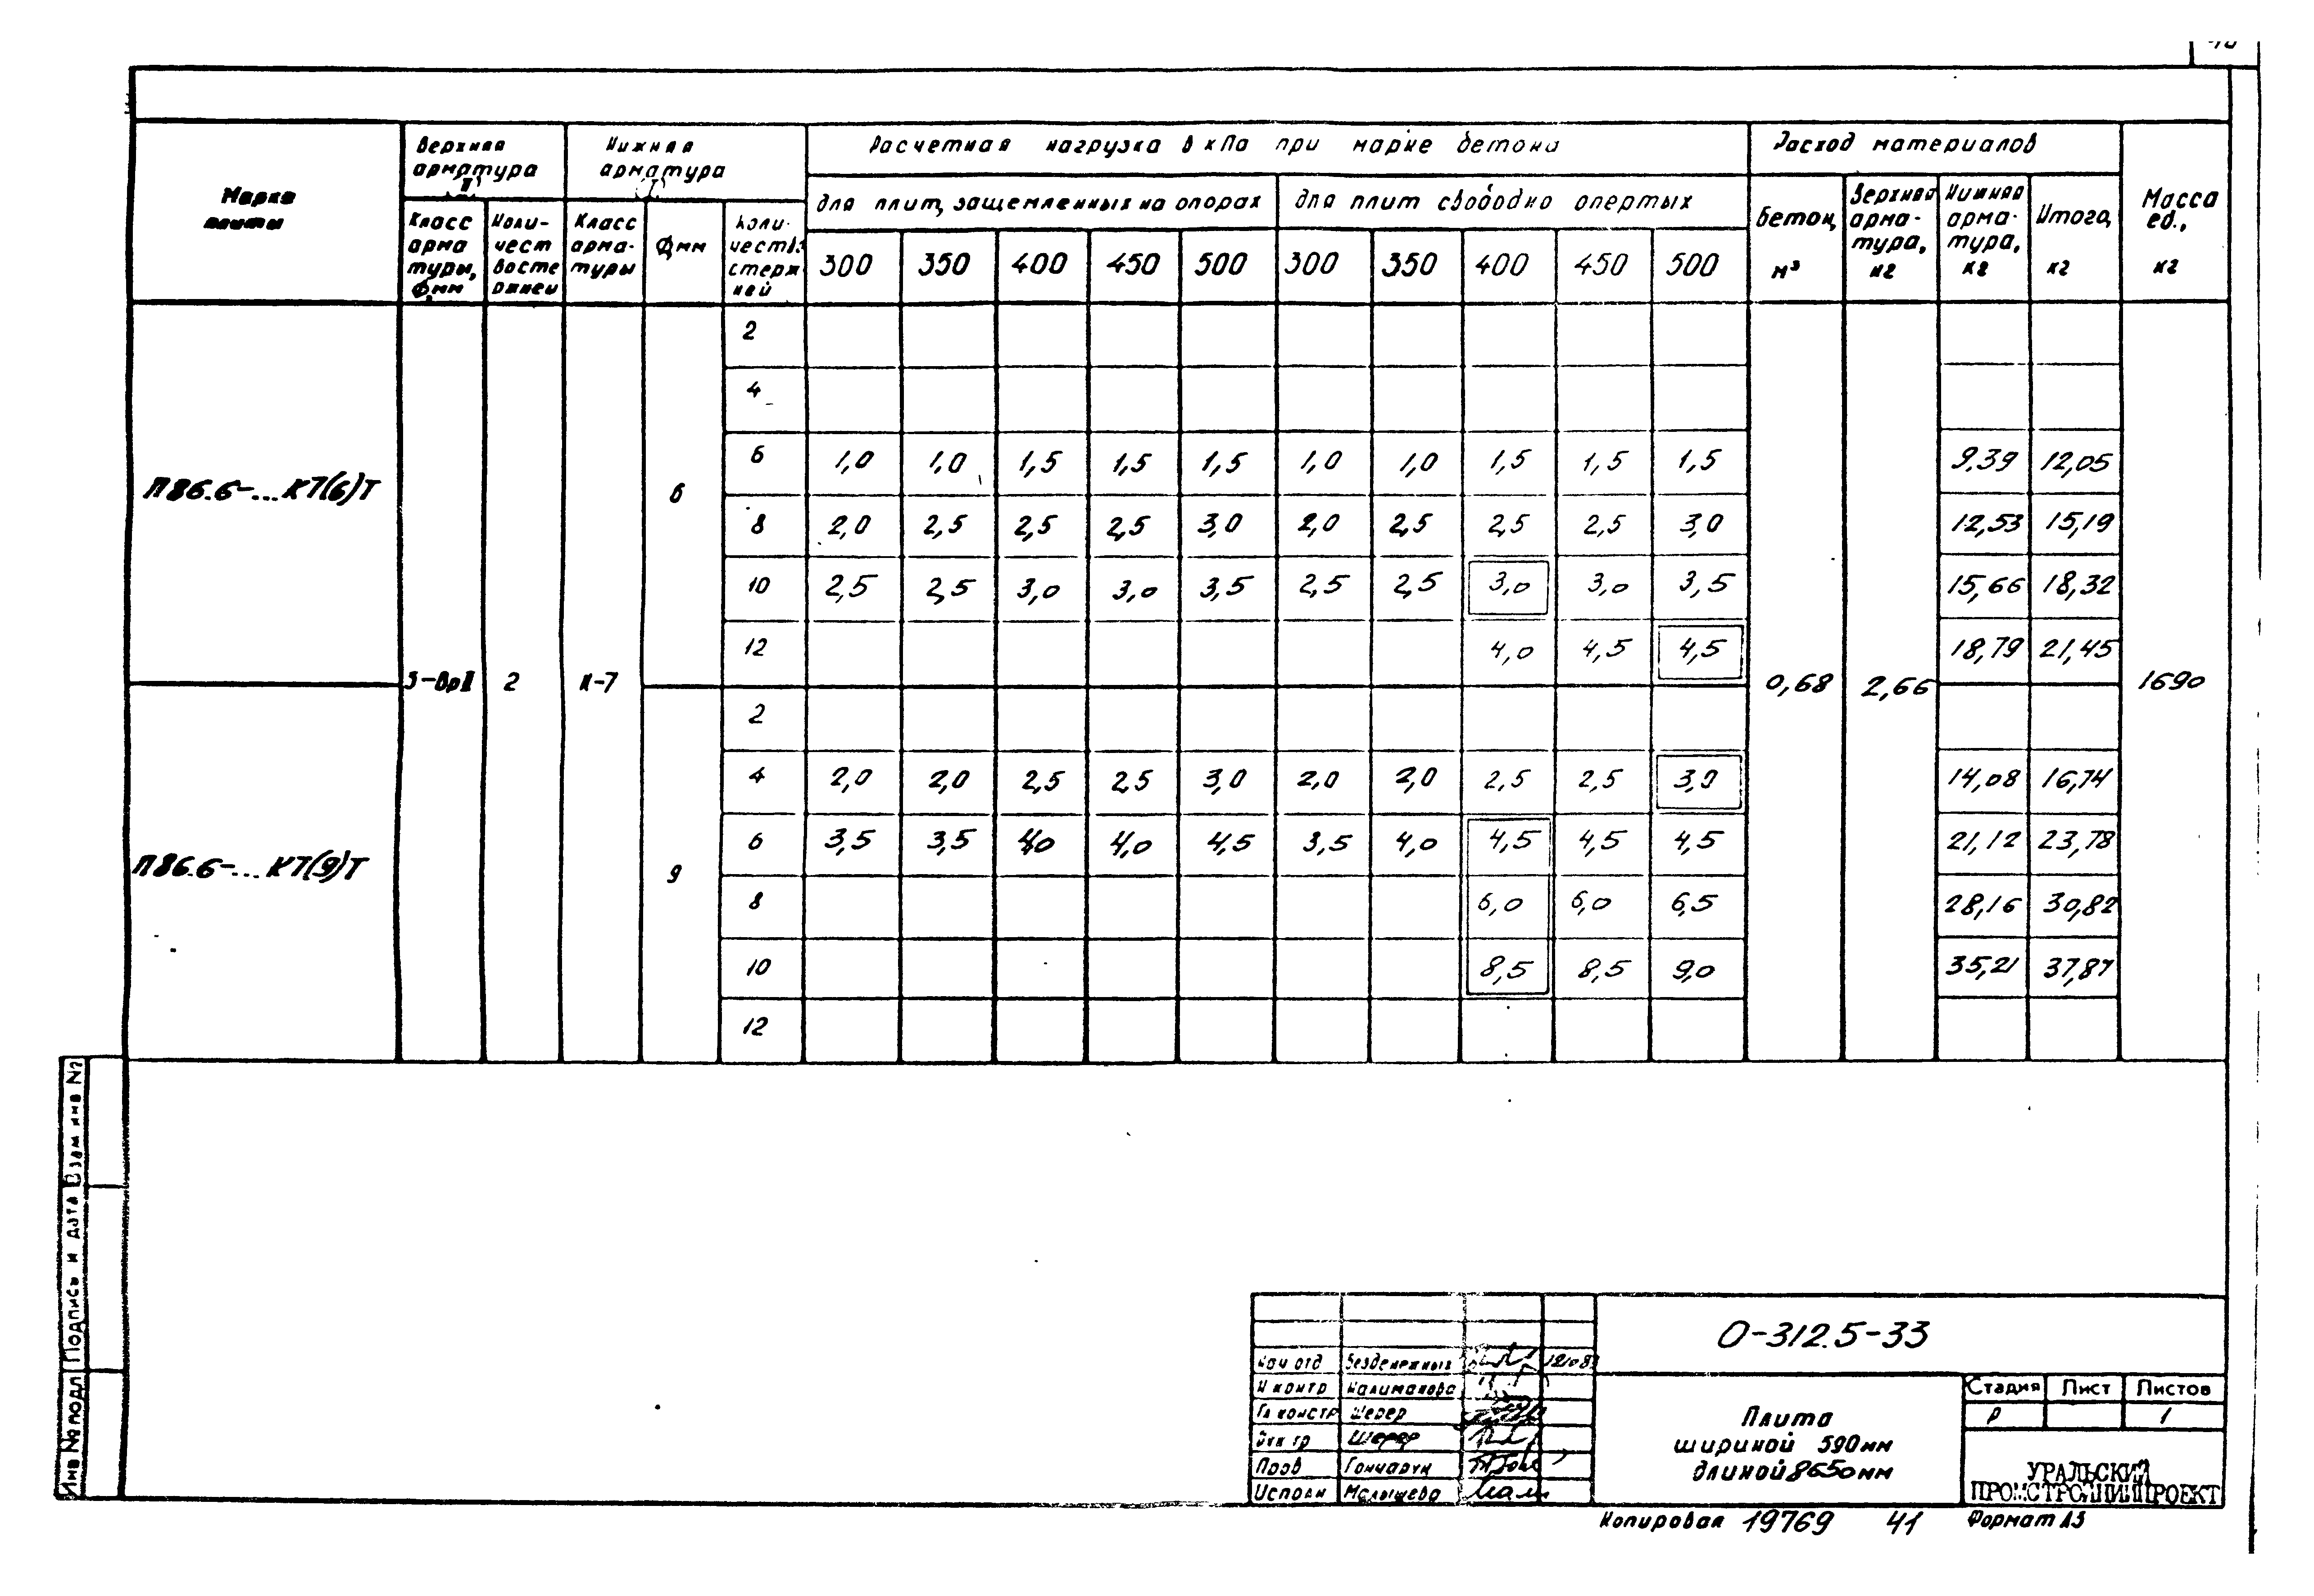 Марка плиты
Верхняя арматура
Нижняя арматура
Расчетная нагрузка в кПа при марке бетона
Расход материалов
Масса ед., кг
Класс арматуры, Ф мм
Количество стержней
Класс арматуры
Ф мм
Количество стержней
для плит, защемленных на опорах
для плит свободно опертых
Бетон, м³
Верхняя арматура, кг
Нижняя арматура, кг
Итого, кг
300 350 400 450 500 300 350 400 450 500
П86.6-...К7(6)Т
5-ВрII 2 К-7 6
0,68 2,66 1690
2
4
6 1,0 1,0 1,5 1,5 1,5 1,0 1,0 1,5 1,5 1,5 9,39 12,05
8 2,0 2,5 2,5 2,5 3,0 2,0 2,5 2,5 2,5 3,0 12,53 15,19
10 2,5 2,5 3,0 3,0 3,5 2,5 2,5 3,0 3,0 3,5 15,66 18,32
12 4,0 4,5 4,5 18,79 21,45
П86.6-...К7(9)Т
9
2
4 2,0 2,0 2,5 2,5 3,0 2,0 2,0 2,5 2,5 3,0 14,08 16,74
6 3,5 3,5 4,0 4,0 4,5 3,5 4,0 4,5 4,5 4,5 21,12 23,78
8 6,0 6,0 6,5 28,16 30,82
10 8,5 8,5 9,0 35,21 37,87
12
Инв № подл
Подпись и дата
Взам инв №
О-312.5-33
Нач отд Безденежных
Н контр Калиманова
Гл констр Шерер
Рук гр Шерер
Пров Гончарук
Исполн Малышева
Плита
шириной 590мм
длиной 8650мм
Стадия Лист Листов
Р 1
УРАЛЬСКИЙ
ПРОМСТРОЙНИИПРОЕКТ
Копировал 19769 41 Формат А3